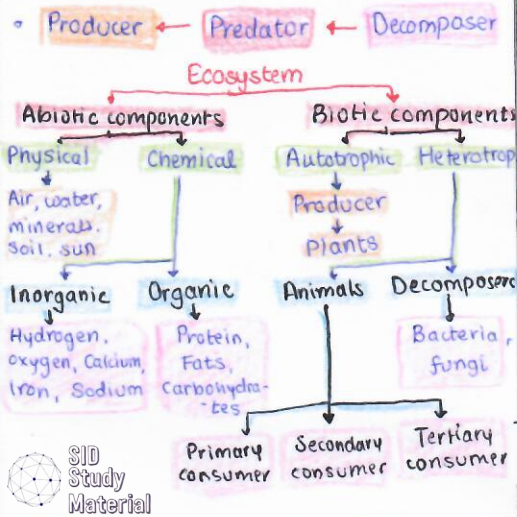 Producer Predator Decomposer
Ecosystem
Abiotic components Biotic components
Physical Chemical Autotrophic Heterotrop
Air, water,
minerals.
soil, sun
Producer
Plants
Inorganic Organic Animals Decomposers
Hydrogen,
oxygen, Calcium,
Iron, Sodium
Protein,
Fats,
Carbohydra-
-tes
Bacteria,
fungi
Primary
consumer
Secondary
consumer
Tertiary
consumer
SID
Study
Material